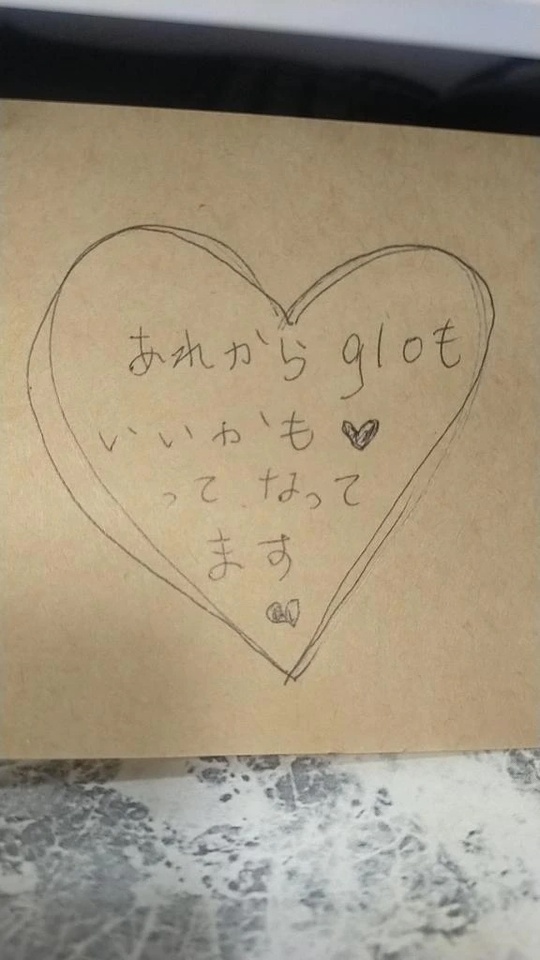 あれから gloも
いいかも♥
って なって
ます
♥